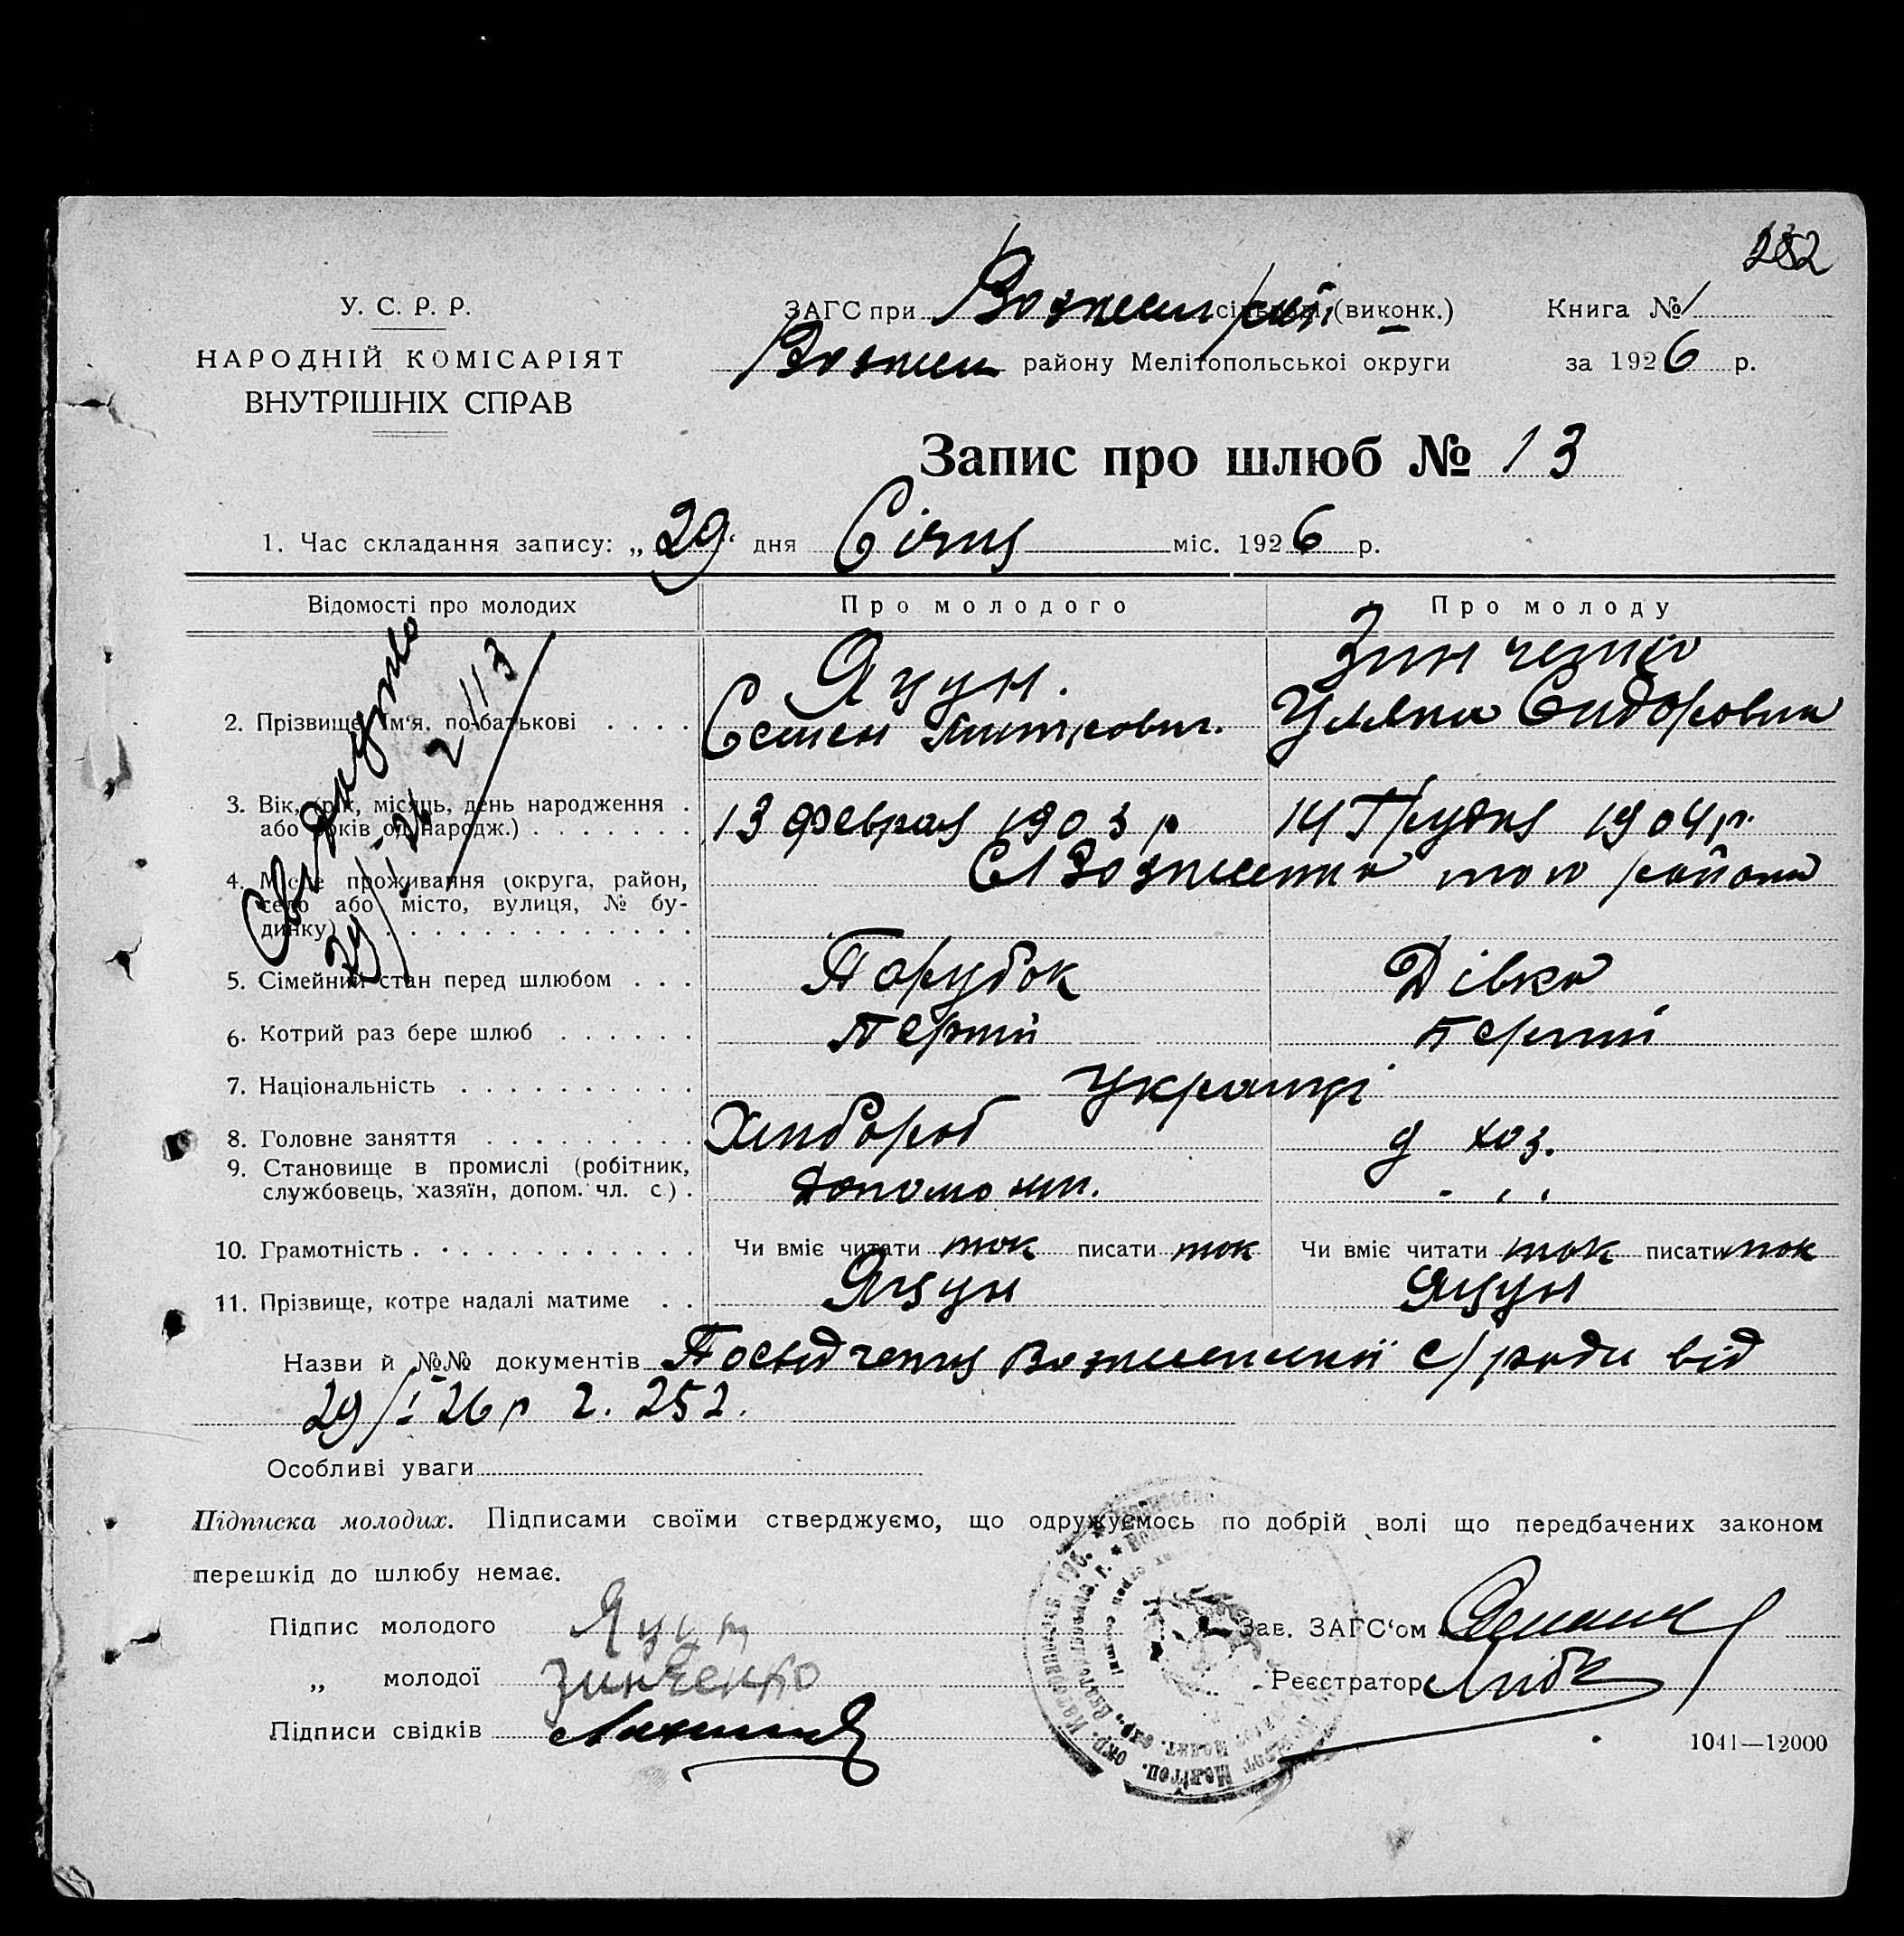 252
У. С. Р. Р.
НАРОДНІЙ КОМІСАРІЯТ
ВНУТРІШНІХ СПРАВ
ЗАГС при (виконк.)
району Мелітопольської округи
Книга № 1
за 1926 р.
Запис про шлюб № 13
1. Час складання запису: „29“ дня Січня міс. 1926 р.
Відомості про молодих Про молодого Про молоду
2. Прізвище, ім'я, по-батькові
Яцун. Зинченко
Семен Уляна Сидоровна
3. Вік, (рік, місяць, день народження
або років од народж.)
13 Февраля 1903 р 14 Грудня 1904 р.
4. Місце проживання (округа, район,
село або місто, вулиця, № бу-
динку)
того району
5. Сімейний стан перед шлюбом Парубок Дівка
6. Котрий раз бере шлюб Перший Перший
7. Національність Українці
8. Головне заняття Хлібороб д хоз.
9. Становище в промислі (робітник,
службовець, хазяїн, допом. чл. с.)
10. Грамотність Чи вміє читати так писати так Чи вміє читати так писати так
11. Прізвище, котре надалі матиме Яцун Яцун
Назви й №№ документів Посвідчення с/ради від
29/I 26 р 2. 252.
Особливі уваги
Підписка молодих. Підписами своїми стверджуємо, що одружуємось по добрій волі що передбачених законом
перешкід до шлюбу немає.
Підпис молодого Яцун
„ молодої Зинченко
Підписи свідків
Зав. ЗАГС'ом
Реєстратор
1041—12000